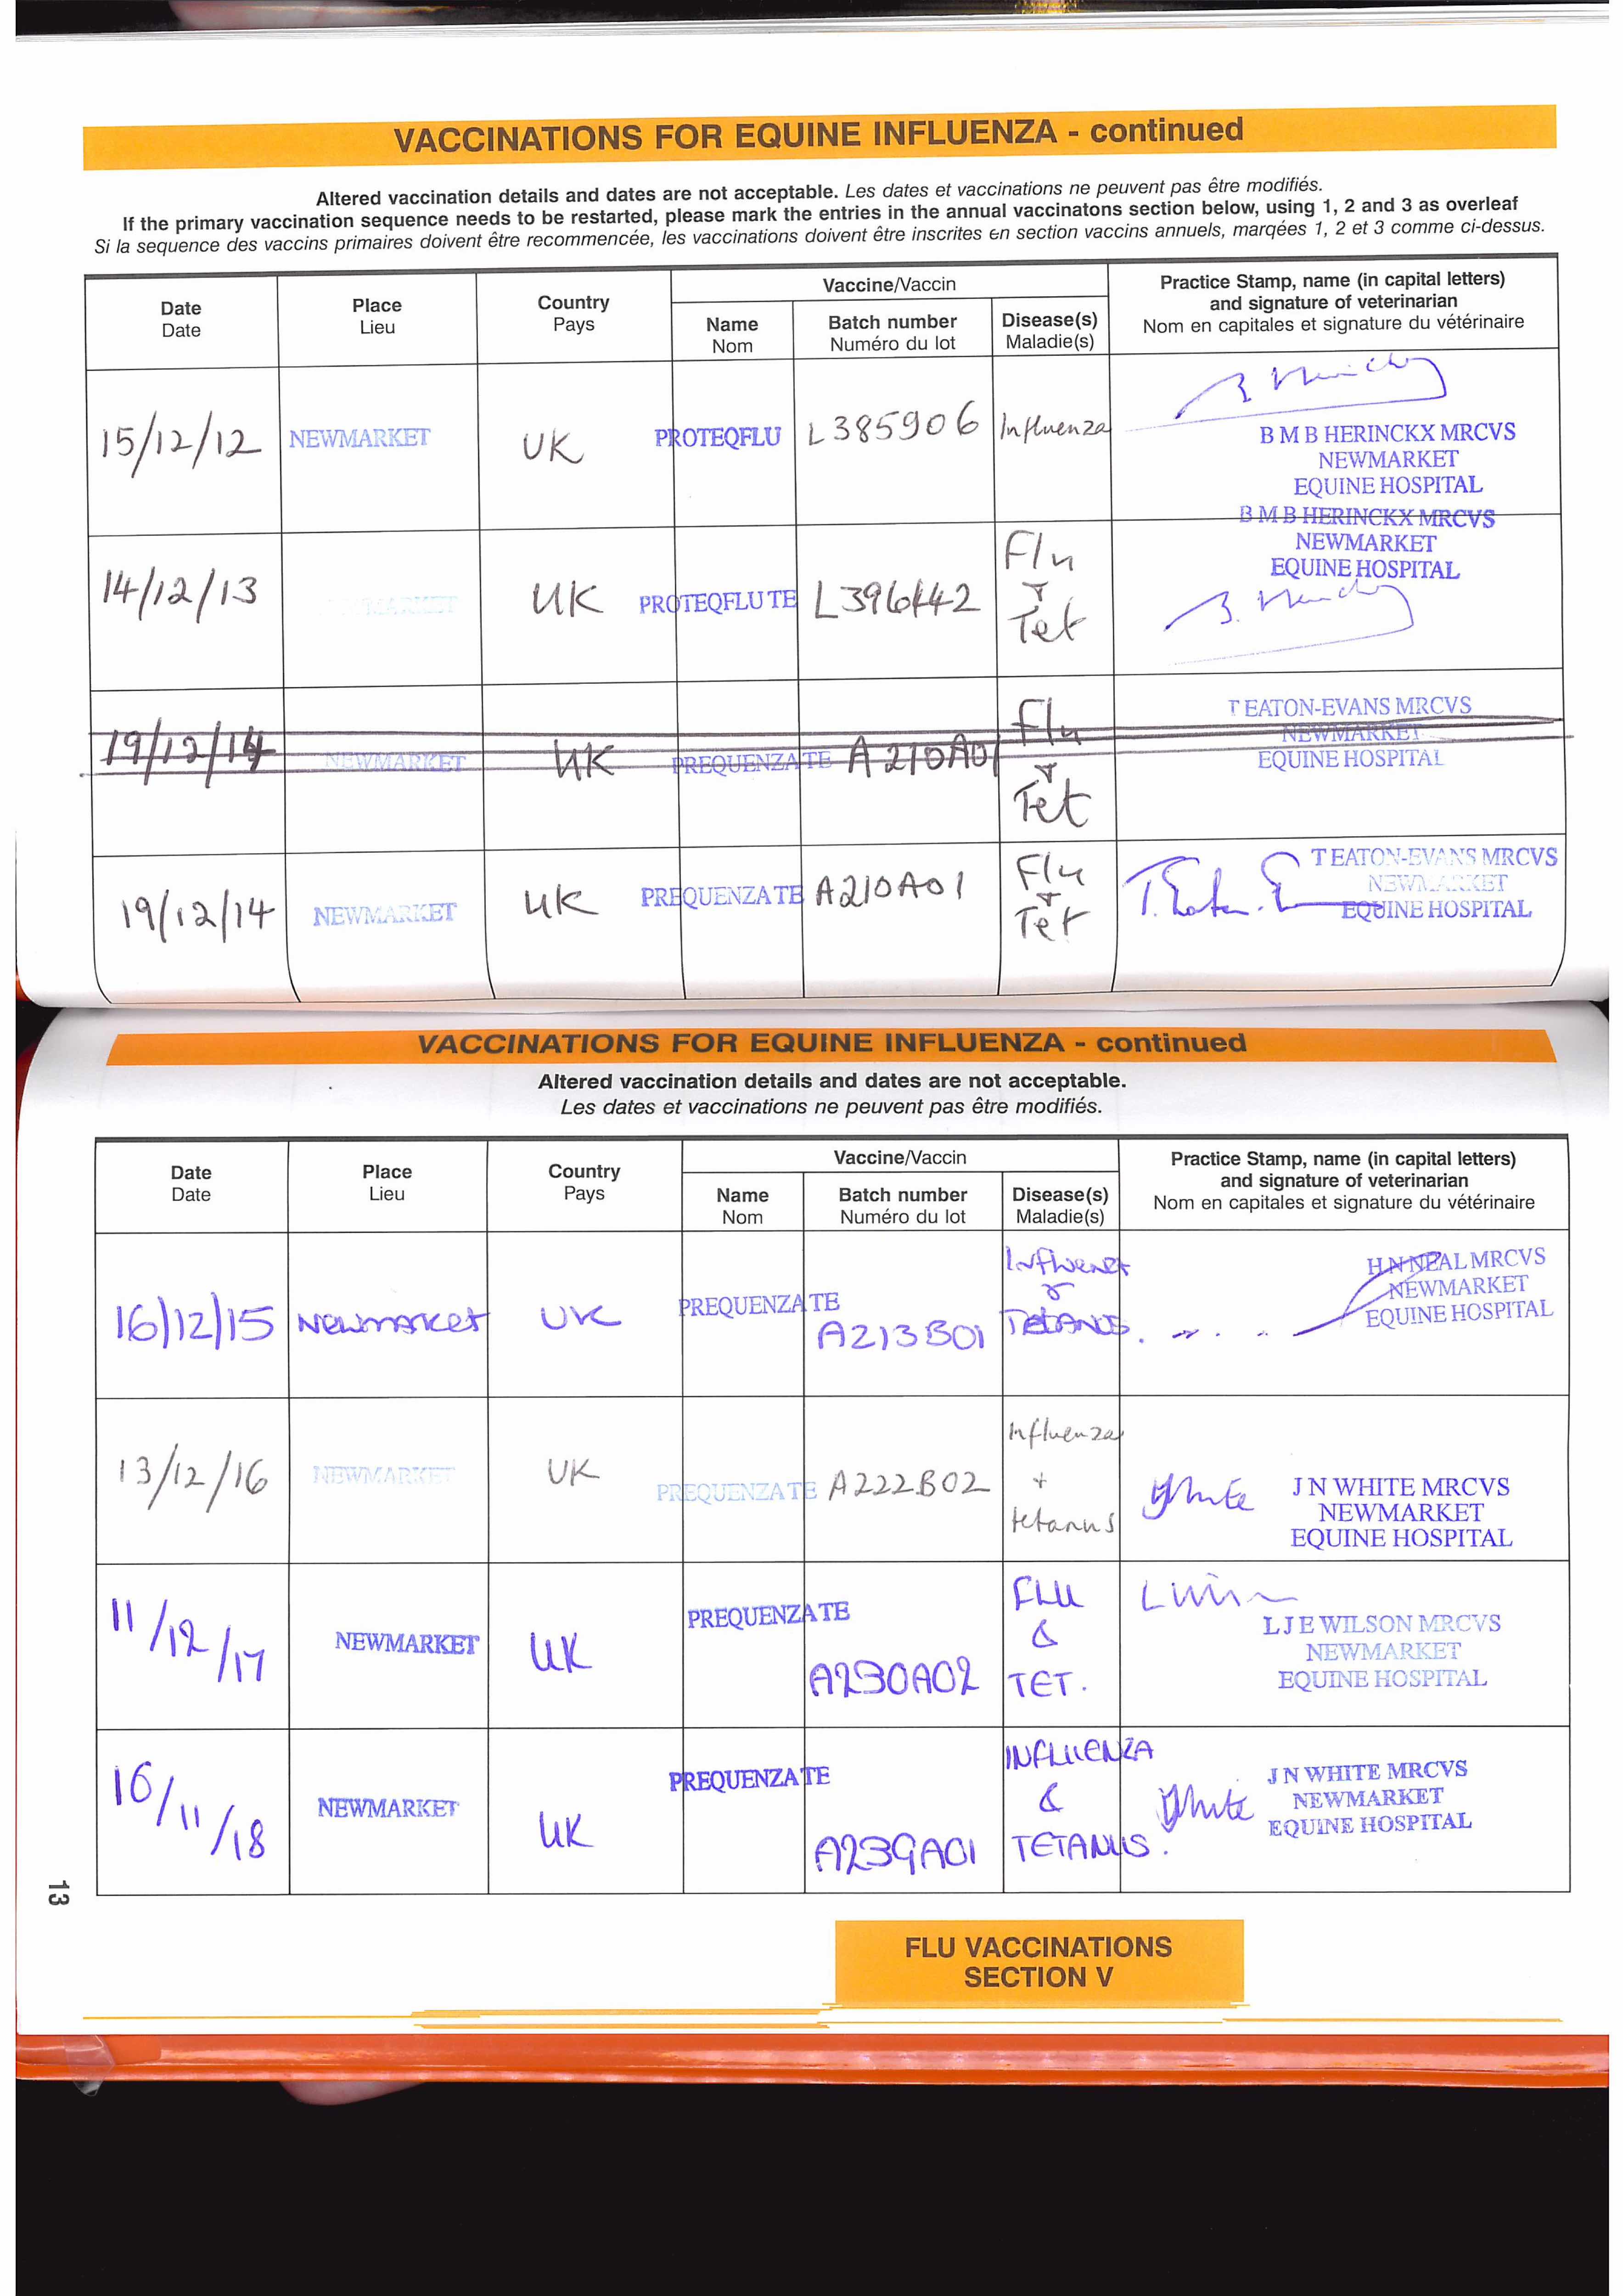 VACCINATIONS FOR EQUINE INFLUENZA - continued
Altered vaccination details and dates are not acceptable. Les dates et vaccinations ne peuvent pas être modifiés.
If the primary vaccination sequence needs to be restarted, please mark the entries in the annual vaccinatons section below, using 1, 2 and 3 as overleaf
Si la sequence des vaccins primaires doivent être recommencée, les vaccinations doivent être inscrites en section vaccins annuels, marqées 1, 2 et 3 comme ci-dessus.
Date
Date
Place
Lieu
Country
Pays
Vaccine/Vaccin
Name
Nom
Batch number
Numéro du lot
Disease(s)
Maladie(s)
Practice Stamp, name (in capital letters)
and signature of veterinarian
Nom en capitales et signature du vétérinaire
15/12/12 NEWMARKET UK PROTEQFLU L385906 Influenza
B M B HERINCKX MRCVS
NEWMARKET
EQUINE HOSPITAL
14/12/13 NEWMARKET UK PROTEQFLU TE L396442 Flu
&
Tet
B M B HERINCKX MRCVS
NEWMARKET
EQUINE HOSPITAL
19/12/14 NEWMARKET UK PREQUENZA TE A210A01 Flu
&
Tet
T EATON-EVANS MRCVS
NEWMARKET
EQUINE HOSPITAL
19/12/14 NEWMARKET UK PREQUENZA TE A210A01 Flu
&
Tet
T EATON-EVANS MRCVS
NEWMARKET
EQUINE HOSPITAL
VACCINATIONS FOR EQUINE INFLUENZA - continued
Altered vaccination details and dates are not acceptable.
Les dates et vaccinations ne peuvent pas être modifiés.
Date
Date
Place
Lieu
Country
Pays
Vaccine/Vaccin
Name
Nom
Batch number
Numéro du lot
Disease(s)
Maladie(s)
Practice Stamp, name (in capital letters)
and signature of veterinarian
Nom en capitales et signature du vétérinaire
16/12/15 Newmarket UK PREQUENZA TE A213B01 Influenza
&
TETANUS.
H N NEAL MRCVS
NEWMARKET
EQUINE HOSPITAL
13/12/16 NEWMARKET UK PREQUENZA TE A222B02 Influenza
+
tetanus
JWhite
J N WHITE MRCVS
NEWMARKET
EQUINE HOSPITAL
11/12/17 NEWMARKET UK PREQUENZA TE A230A02 FLU
&
TET.
L J E WILSON MRCVS
NEWMARKET
EQUINE HOSPITAL
16/11/18 NEWMARKET UK PREQUENZA TE A239A01 INFLUENZA
&
TETANUS.
JWhite
J N WHITE MRCVS
NEWMARKET
EQUINE HOSPITAL
13
FLU VACCINATIONS
SECTION V